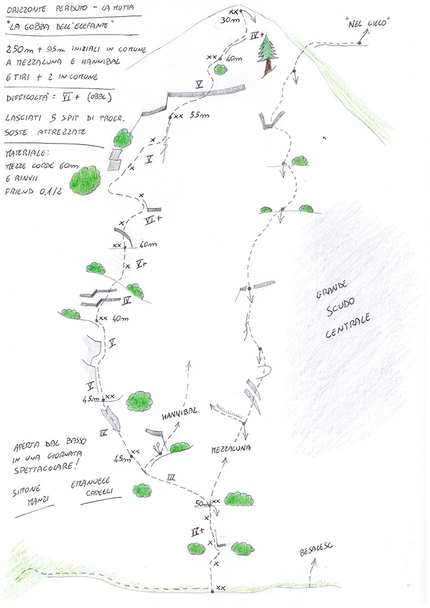 ORIZZONTE PERDUTO - LA MOTTA
"LA GOBBA DELL'ELEFANTE"
250m + 95m INIZIALI IN COMUNE
A MEZZALUNA E HANNIBAL
6 TIRI + 2 IN COMUNE
DIFFICOLTÀ = VI+ (OBBL)
LASCIATI 5 SPIT DI PROGR.
SOSTE ATTREZZATE
MATERIALE:
MEZZE CORDE 60m
6 RINVII
FRIEND 0,1/2
"NEL CIELO"
xx
30m
IV+
xx 40m
V
xx 55m
x
V
x
x
VI+
xx 40m
x VI+
IV
xx 40m
V
V
45m xx
HANNIBAL
MEZZALUNA
45m xx
III
50m xx
x
IV+
x
xx
GRANDE
SCUDO
CENTRALE
BESALESC
APERTA DAL BASSO
IN UNA GIORNATA
SPETTACOLARE!
SIMONE
MANZI
EMANUELE
CADELLI